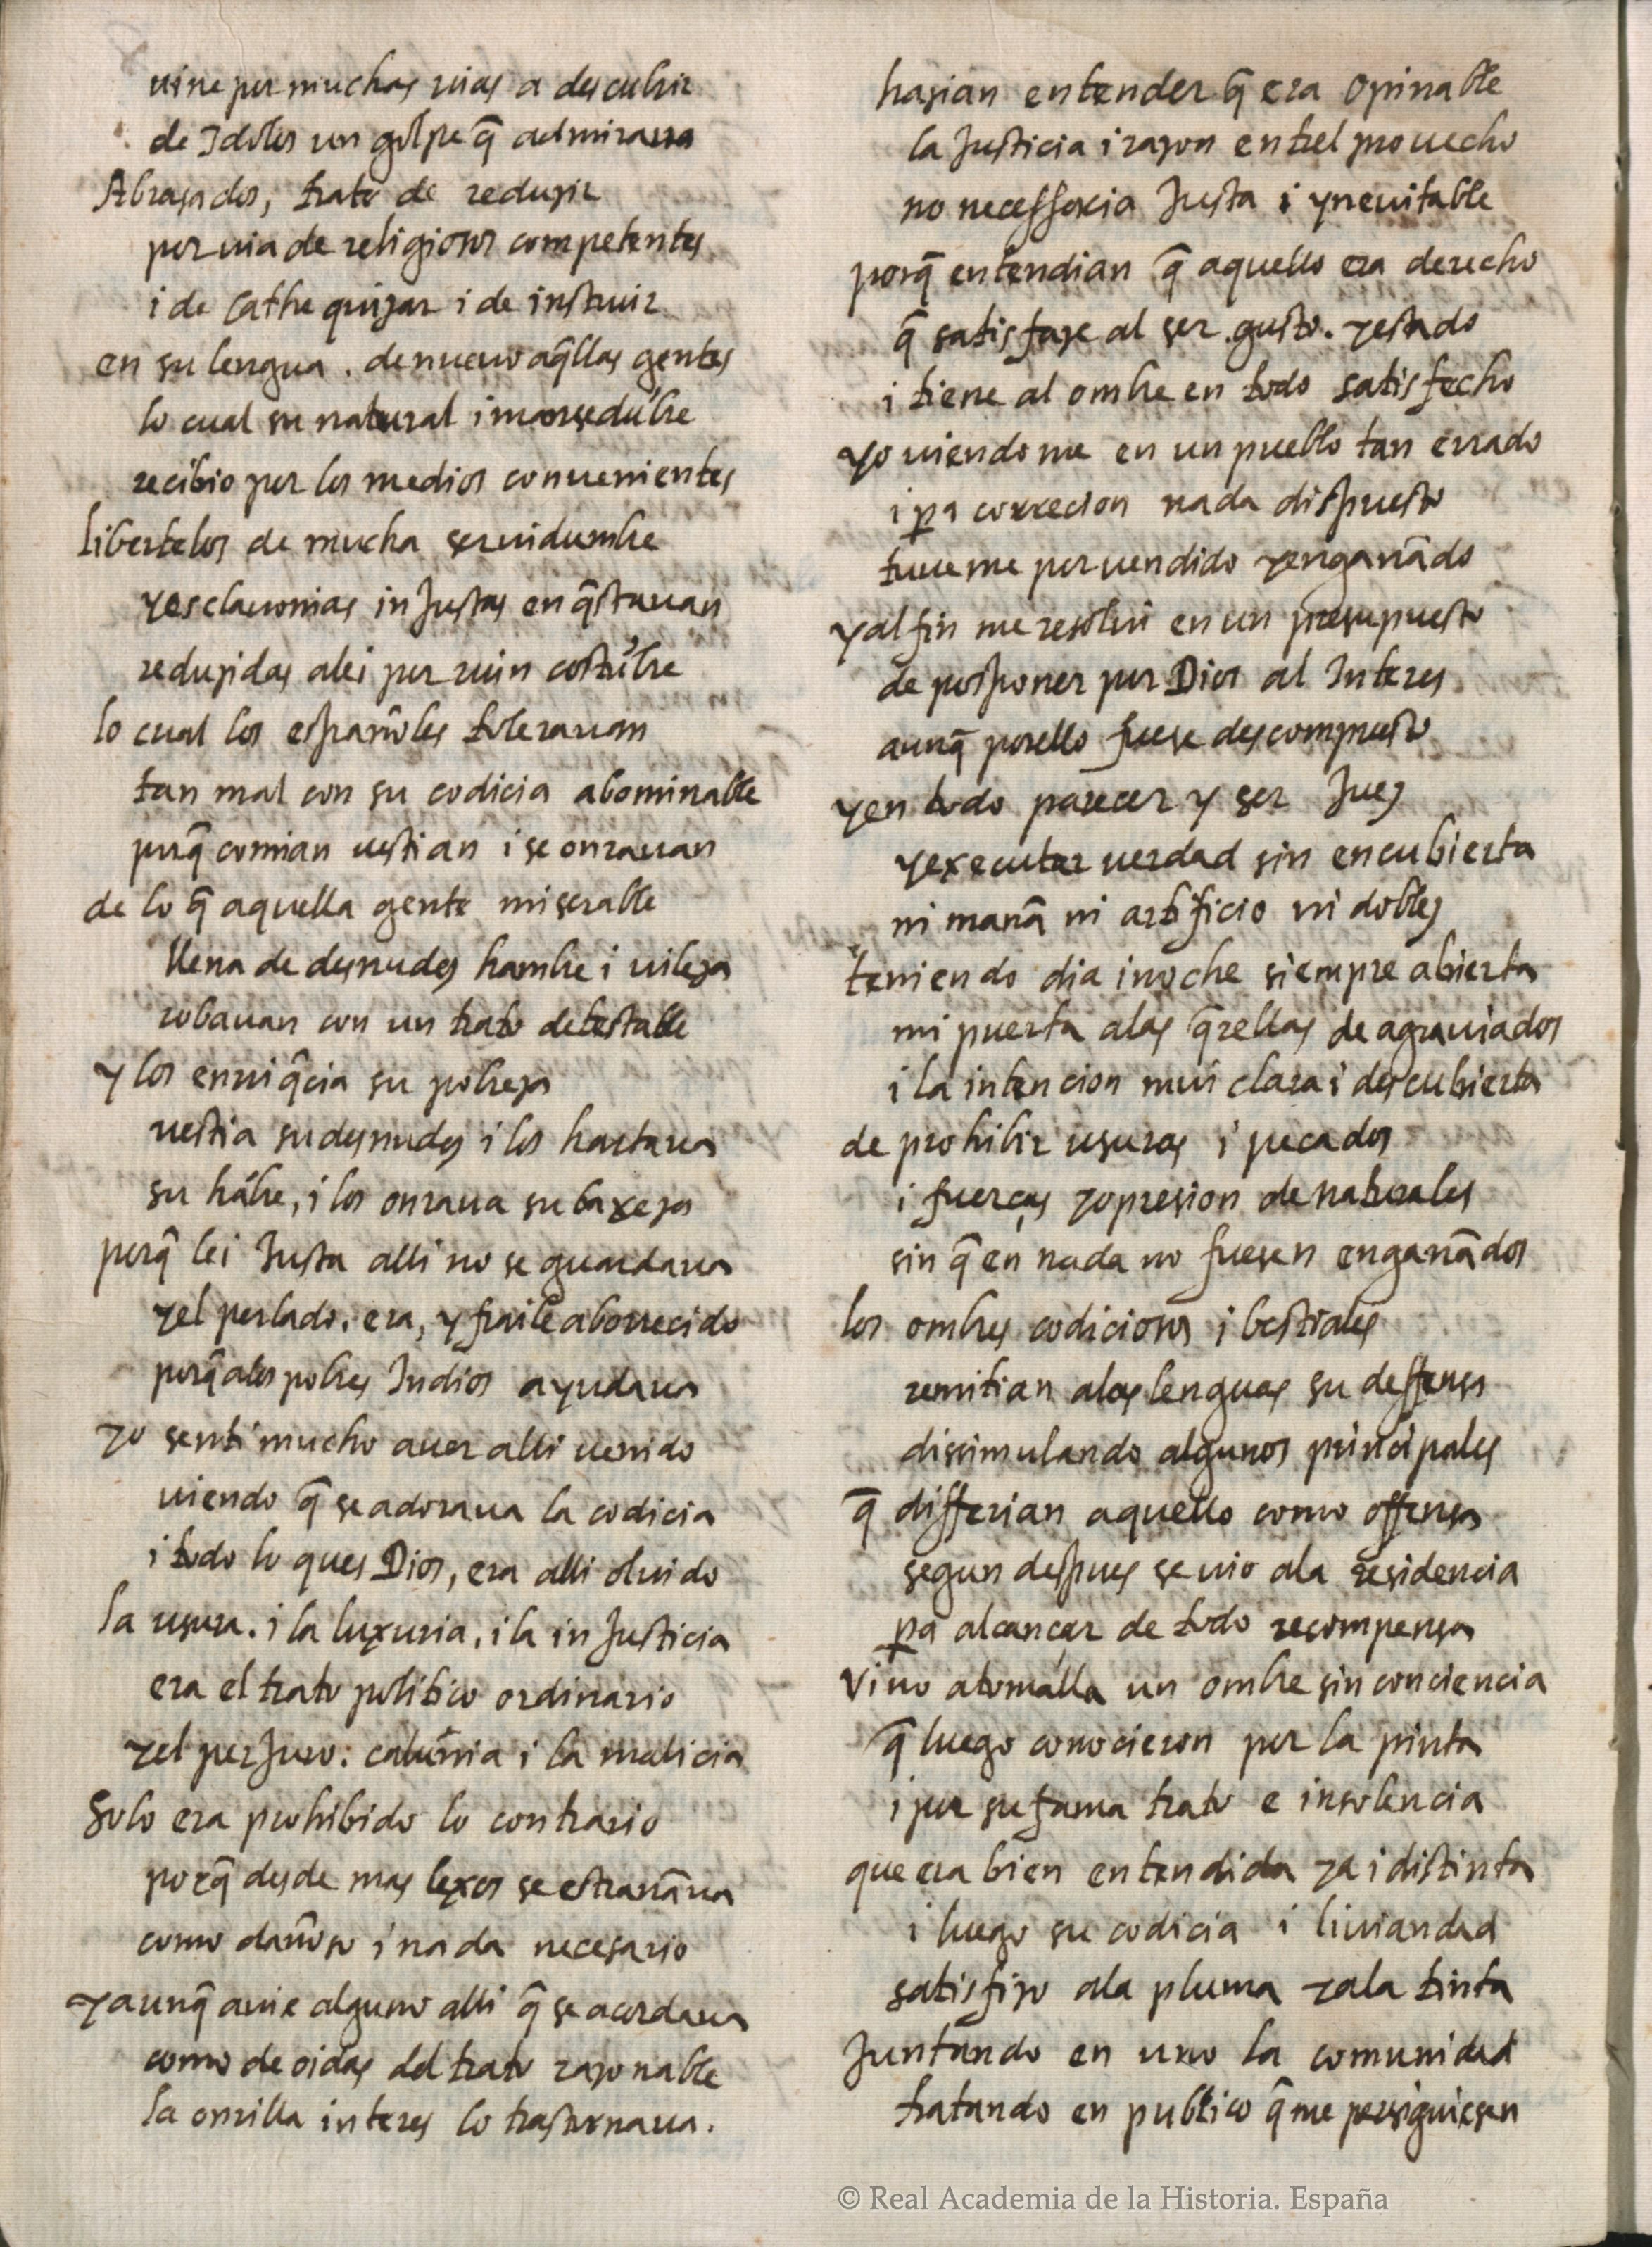 vine por muchas vias a descubrir
de Idolos un golpe q̃ admiraua
Abrasados, trato de reduzir
por uia de religiosos competentes
i de Cathequizar i de instruir
en su lengua . de nueuo aq̃llas gentes
lo cual su natural i mansedũbre
recibio por los medios conuenientes
libertelos de mucha seruidumbre
y esclauonias inJustas en q̃stauan
reduzidas a lei por ruin costũbre
lo cual los españoles tolerauan
tan mal con su codicia abominable
porq̃ comian uestian i se onrauan
de lo q̃ aquella gente miserable
llena de desnudez hambre i uileza
robauan con un trato detestable
y los enriq̃cia su pobreza
uestia su desnudez i los hartaua
su hãbre, i los onraua su baxeza
porq̃ lei Justa alli no se guardaua
y el perlado, era, y fraile aborrecido
porq̃ a los pobres Indios ayudaua
yo senti mucho auer alli uenido
uiendo q̃ se adoraua la codicia
i todo lo ques Dios, era alli oluido
la usura. i la luxuria, i la inJusticia
era el trato politico ordinario
y el perJuro: calũnia i la malicia
Solo era prohibido lo contrario
porq̃ desde mas lexos se estrañaua
como dañoso i nada necesario
y aunq̃ auie alguno alli q̃ se acordaua
como de oidas del trato razonable
la onrilla interes lo trastornaua.
hazian entender q̃ era opinable
la Justicia i razon entrel prouecho
no necessaria Justa i yneuitable
porq̃ entendian q̃ aquello era derecho
q̃ satisfaze al ser . gusto. y estado
i tiene al ombre en todo satisfecho
yo uiendome en un pueblo tan errado
i pa correcion nada dispuesto
tuueme por uendido y engañado
y al fin me resolui en un presupuesto
de posponer por Dios al Interes
aunq̃ porello fuese descompuesto
y en todo parecer y ser Juez
y executar uerdad sin encubierta
ni maña ni artificio ni doblez
teniendo dia i noche siempre abierta
mi puerta a las q̃rellas de agrauiados
i la intencion mui clara i descubierta
de prohibir usuras i pecados
i fuerças y opresion de naturales
sin q̃ en nada no fuesen engañados
los ombres codiciosos i bestiales
remitian a las lenguas su deffensa
dissimulando algunos principales
q̃ differian aquello como offensa
segun despues se uio a la residencia
pa alcançar de todo recompensa
Vino a tomalla un ombre sin conciencia
q̃ luego conocieron por la pinta
i por su fama trato e insolencia
que era bien entendida ya i distinta
i luego su codicia i liuiandad
satisfizo a la pluma y a la tinta
Juntando en uno la comunidad
tratando en publico q̃ me persiguiesen
© Real Academia de la Historia. España